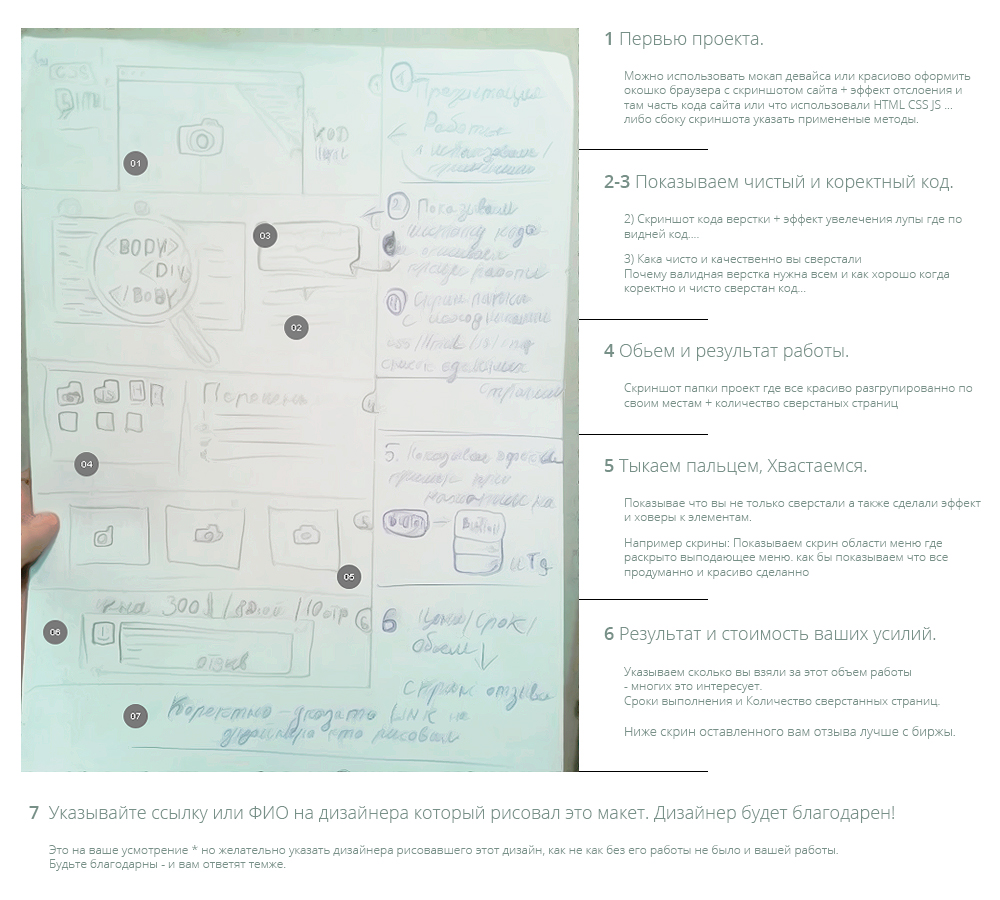 1 Первью проекта.
Можно использовать мокап девайса или красиово оформить
окошко браузера с скриншотом сайта + эффект отслоения и
там часть кода сайта или что использовали HTML CSS JS ...
либо сбоку скриншота указать примененые методы.
2-3 Показываем чистый и коректный код.
2) Скриншот кода верстки + эффект увелечения лупы где по
видней код....
3) Кака чисто и качественно вы сверстали
Почему валидная верстка нужна всем и как хорошо когда
коректно и чисто сверстан код...
4 Обьем и результат работы.
Скриншот папки проект где все красиво разгрупированно по
своим местам + количество сверстаных страниц
5 Тыкаем пальцем, Хвастаемся.
Показывае что вы не только сверстали а также сделали эффект
и ховеры к элементам.
Например скрины: Показываем скрин области меню где
раскрыто выподающее меню. как бы показываем что все
продуманно и красиво сделанно
6 Результат и стоимость ваших усилий.
Указываем сколько вы взяли за этот обьем работы
- многих это интересует.
Сроки выполнения и Количество сверстанных страниц.
Ниже скрин оставленного вам отзыва лучше с биржы.
CSS
HTML
01
КОД
1
Презентация
Работы
<BODY>
<DIV
</BODY
03
02
2
Показываем
чистоту кода
04
5
05
5.
Button
Button
и Тд
300$
06
отзыв
6
6
Цена/Срок/
Обьем
скрин отзыва
07
Коректно указать LINK на
дизайнера кто рисовал
7 Указывайте ссылку или ФИО на дизайнера который рисовал это макет. Дизайнер будет благодарен!
Это на ваше усмотрение * но желательно указать дизайнера рисовавшего этот дизайн, как не как без его работы не было и вашей работы.
Будьте благодарны - и вам ответят темже.